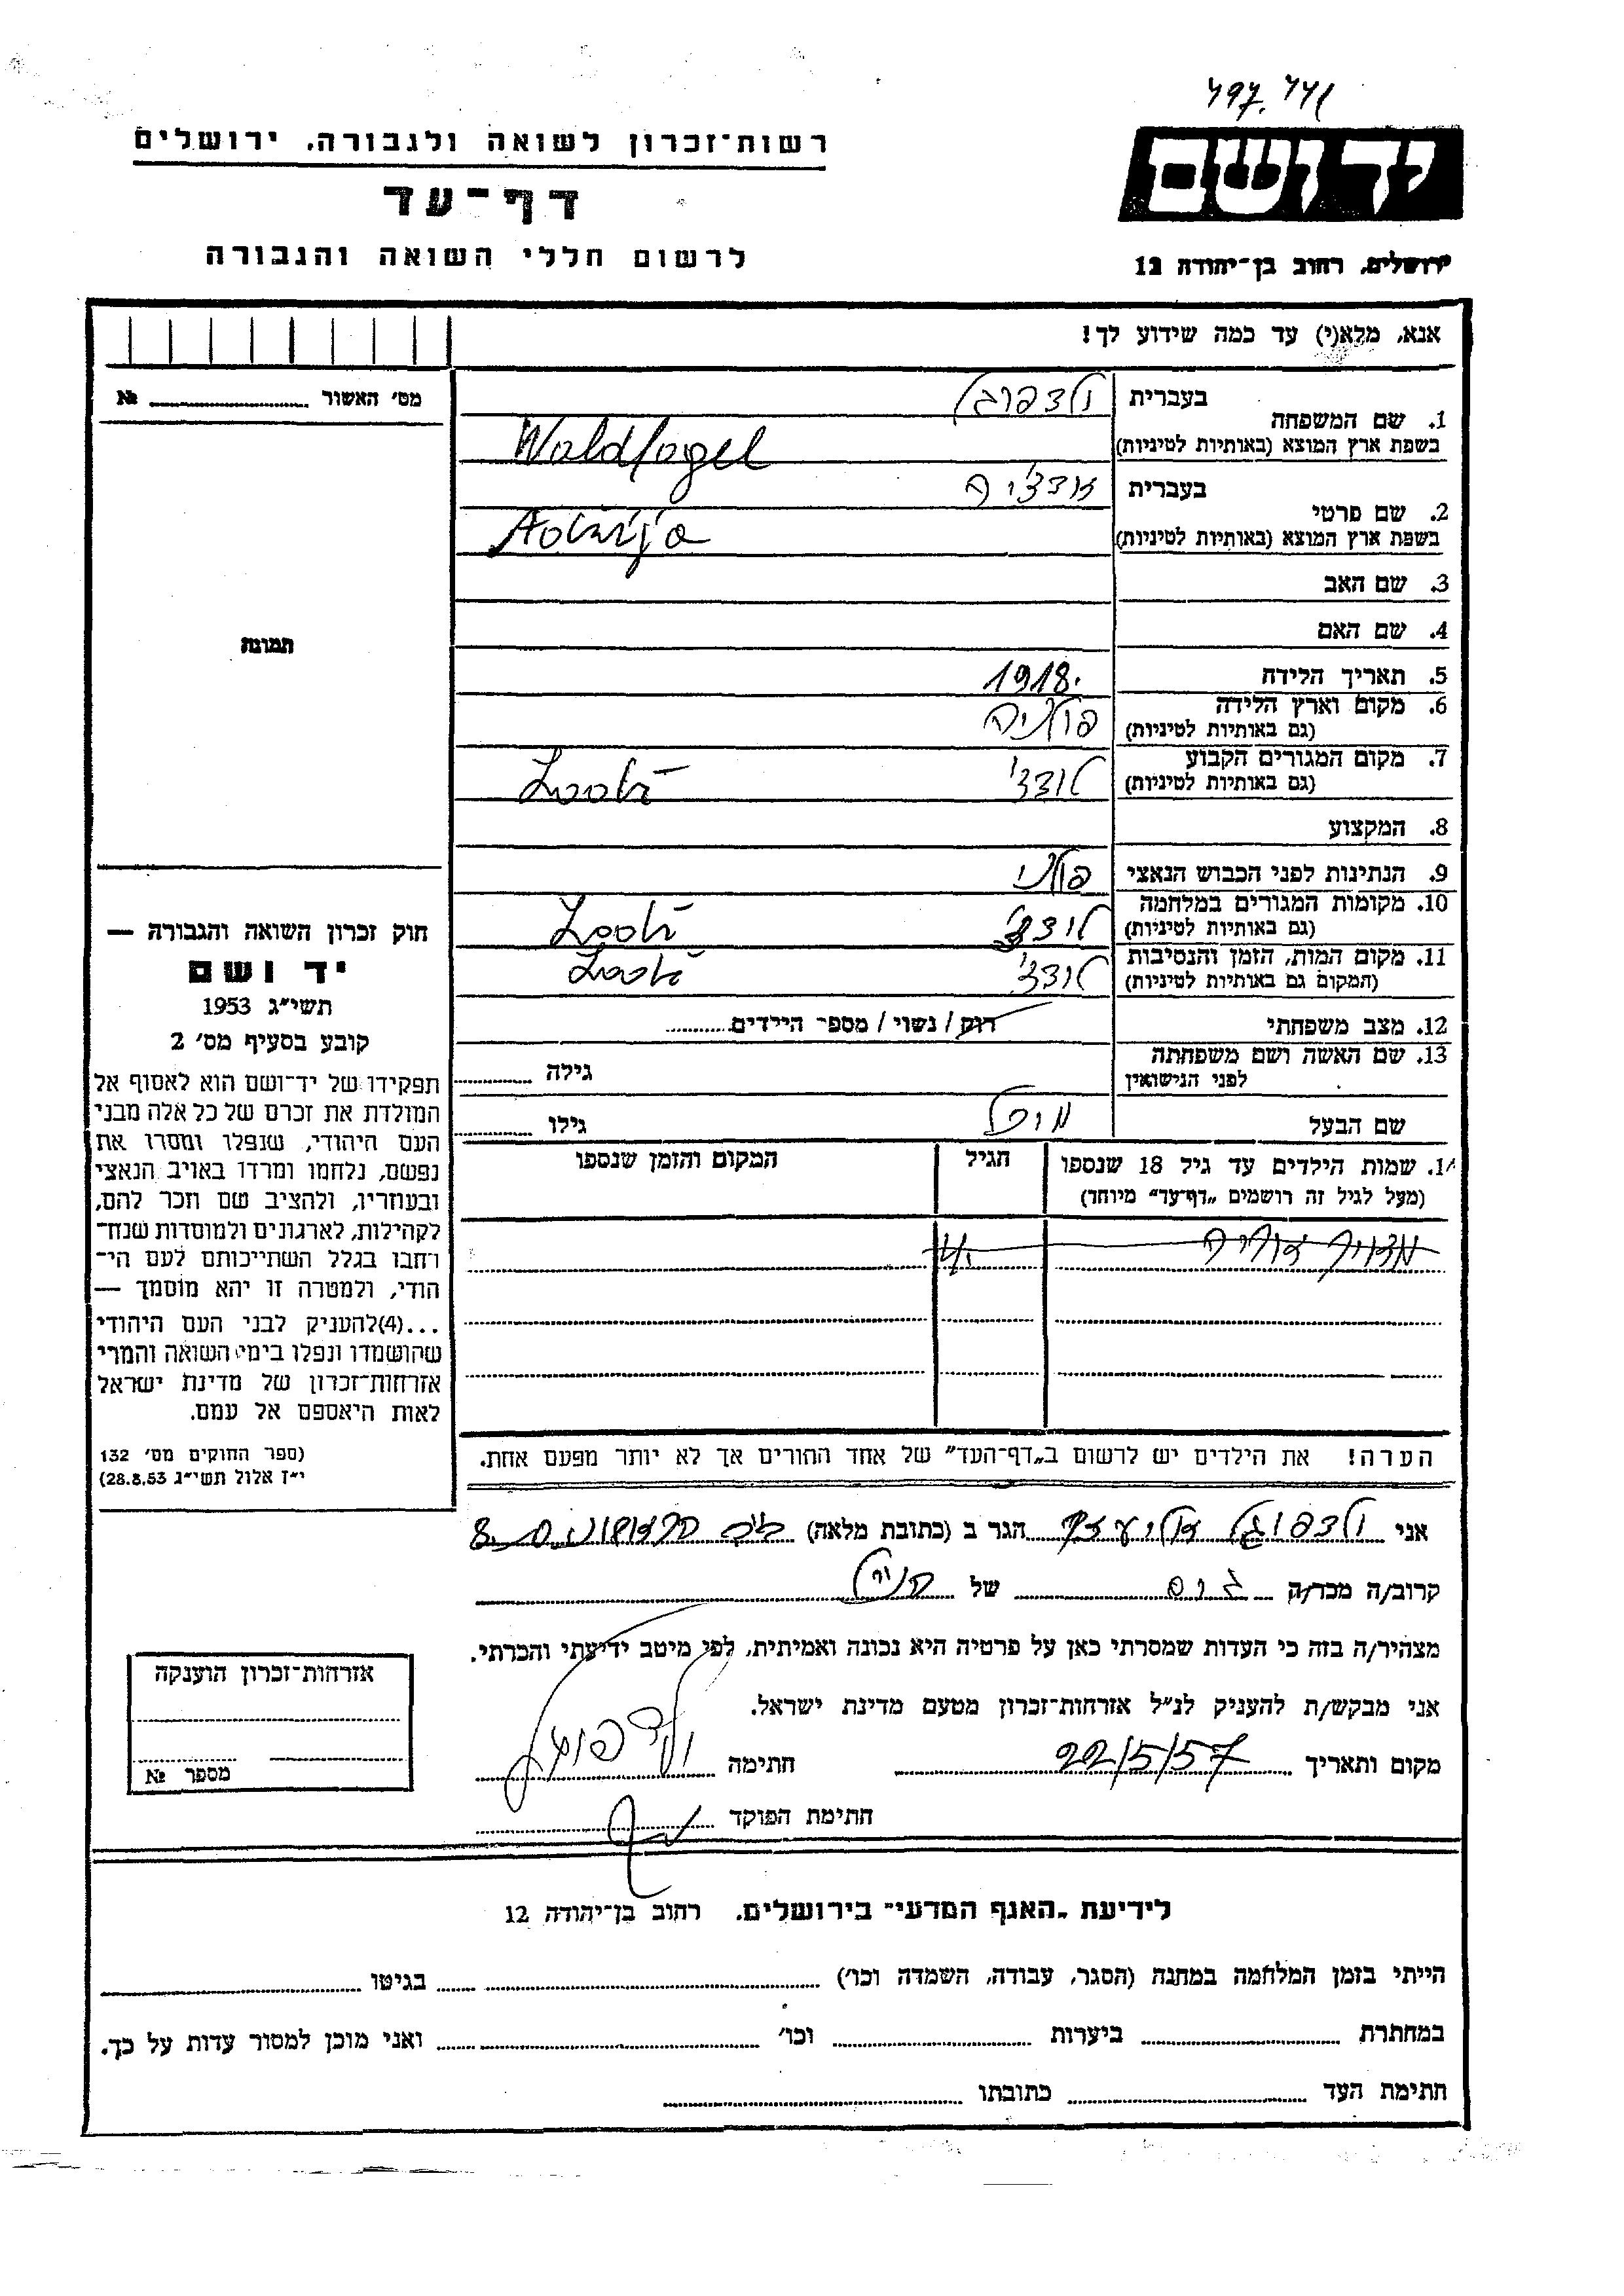 רשות־זכרון לשואה ולגבורה. ירושלים
דף־עד
לרשום חללי השואה והגבורה
יד ושם
ירושלים, רחוב בן־יהודה 12
אנא, מלא(י) עד כמה שידוע לך!
מס׳ האשור № 
תמונה
1. שם המשפחה
בעברית
בשפת ארץ המוצא (באותיות לטיניות) Waldfogel
2. שם פרטי
בעברית
בשפת ארץ המוצא (באותיות לטיניות)
3. שם האב
4. שם האם
5. תאריך הלידה 1918.
6. מקום וארץ הלידה פולניה
(גם באותיות לטיניות)
7. מקום המגורים הקבוע לודז'
(גם באותיות לטיניות)
8. המקצוע
9. הנתינות לפני הכבוש הנאצי פולני
10. מקומות המגורים במלחמה לודז'
(גם באותיות לטיניות)
11. מקום המות, הזמן והנסיבות לודז'
(המקום גם באותיות לטיניות)
12. מצב משפחתי רוק / נשוי / מספר הילדים
13. שם האשה ושם משפחתה גילה
לפני הנישואין
שם הבעל גילו
14. שמות הילדים עד גיל 18 שנספו הגיל המקום והזמן שנספו
(מעל לגיל זה רושמים „דף־עד״ מיוחד)
הערה! את הילדים יש לרשום ב„דף־העד״ של אחד ההורים אך לא יותר מפעם אחת.
חוק זכרון השואה והגבורה —
יד ושם
תשי״ג 1953
קובע בסעיף מס׳ 2
תפקידו של יד־ושם הוא לאסוף אל
המולדת את זכרם של כל אלה מבני
העם היהודי, שנפלו ומסרו את
נפשם, נלחמו ומרדו באויב הנאצי
ובעוזריו, ולהציב שם וזכר להם,
לקהילות, לארגונים ולמוסדות שנח־
רחבו בגלל השתייכותם לעם הי־
הודי, ולמטרה זו יהא מוסמך —
...(4)להעניק לבני העם היהודי
שהושמדו ונפלו בימי השואה והמרי
אזרחות־זכרון של מדינת ישראל
לאות היאספם אל עמם.
(ספר החוקים מס׳ 132
י״ז אלול תשי״ג 28.8.53)
אני ולדפוגל הגר ב (כתובת מלאה) 8
קרוב/ה מכר/ה של
מצהיר/ה בזה כי העדות שמסרתי כאן על פרטיה היא נכונה ואמיתית, לפי מיטב ידיעתי והכרתי.
אני מבקש/ת להעניק לנ״ל אזרחות־זכרון מטעם מדינת ישראל.
מקום ותאריך 22/5/57 חתימה
חתימת הפוקד
אזרחות־זכרון הוענקה
מספר №
לידיעת „האגף המדעי״ בירושלים. רחוב בן־יהודה 12
הייתי בזמן המלחמה במחנה (הסגר, עבודה, השמדה וכו׳) בגיטו
במחתרת ביערות וכו׳ ואני מוכן למסור עדות על כך.
חתימת העד כתובתו